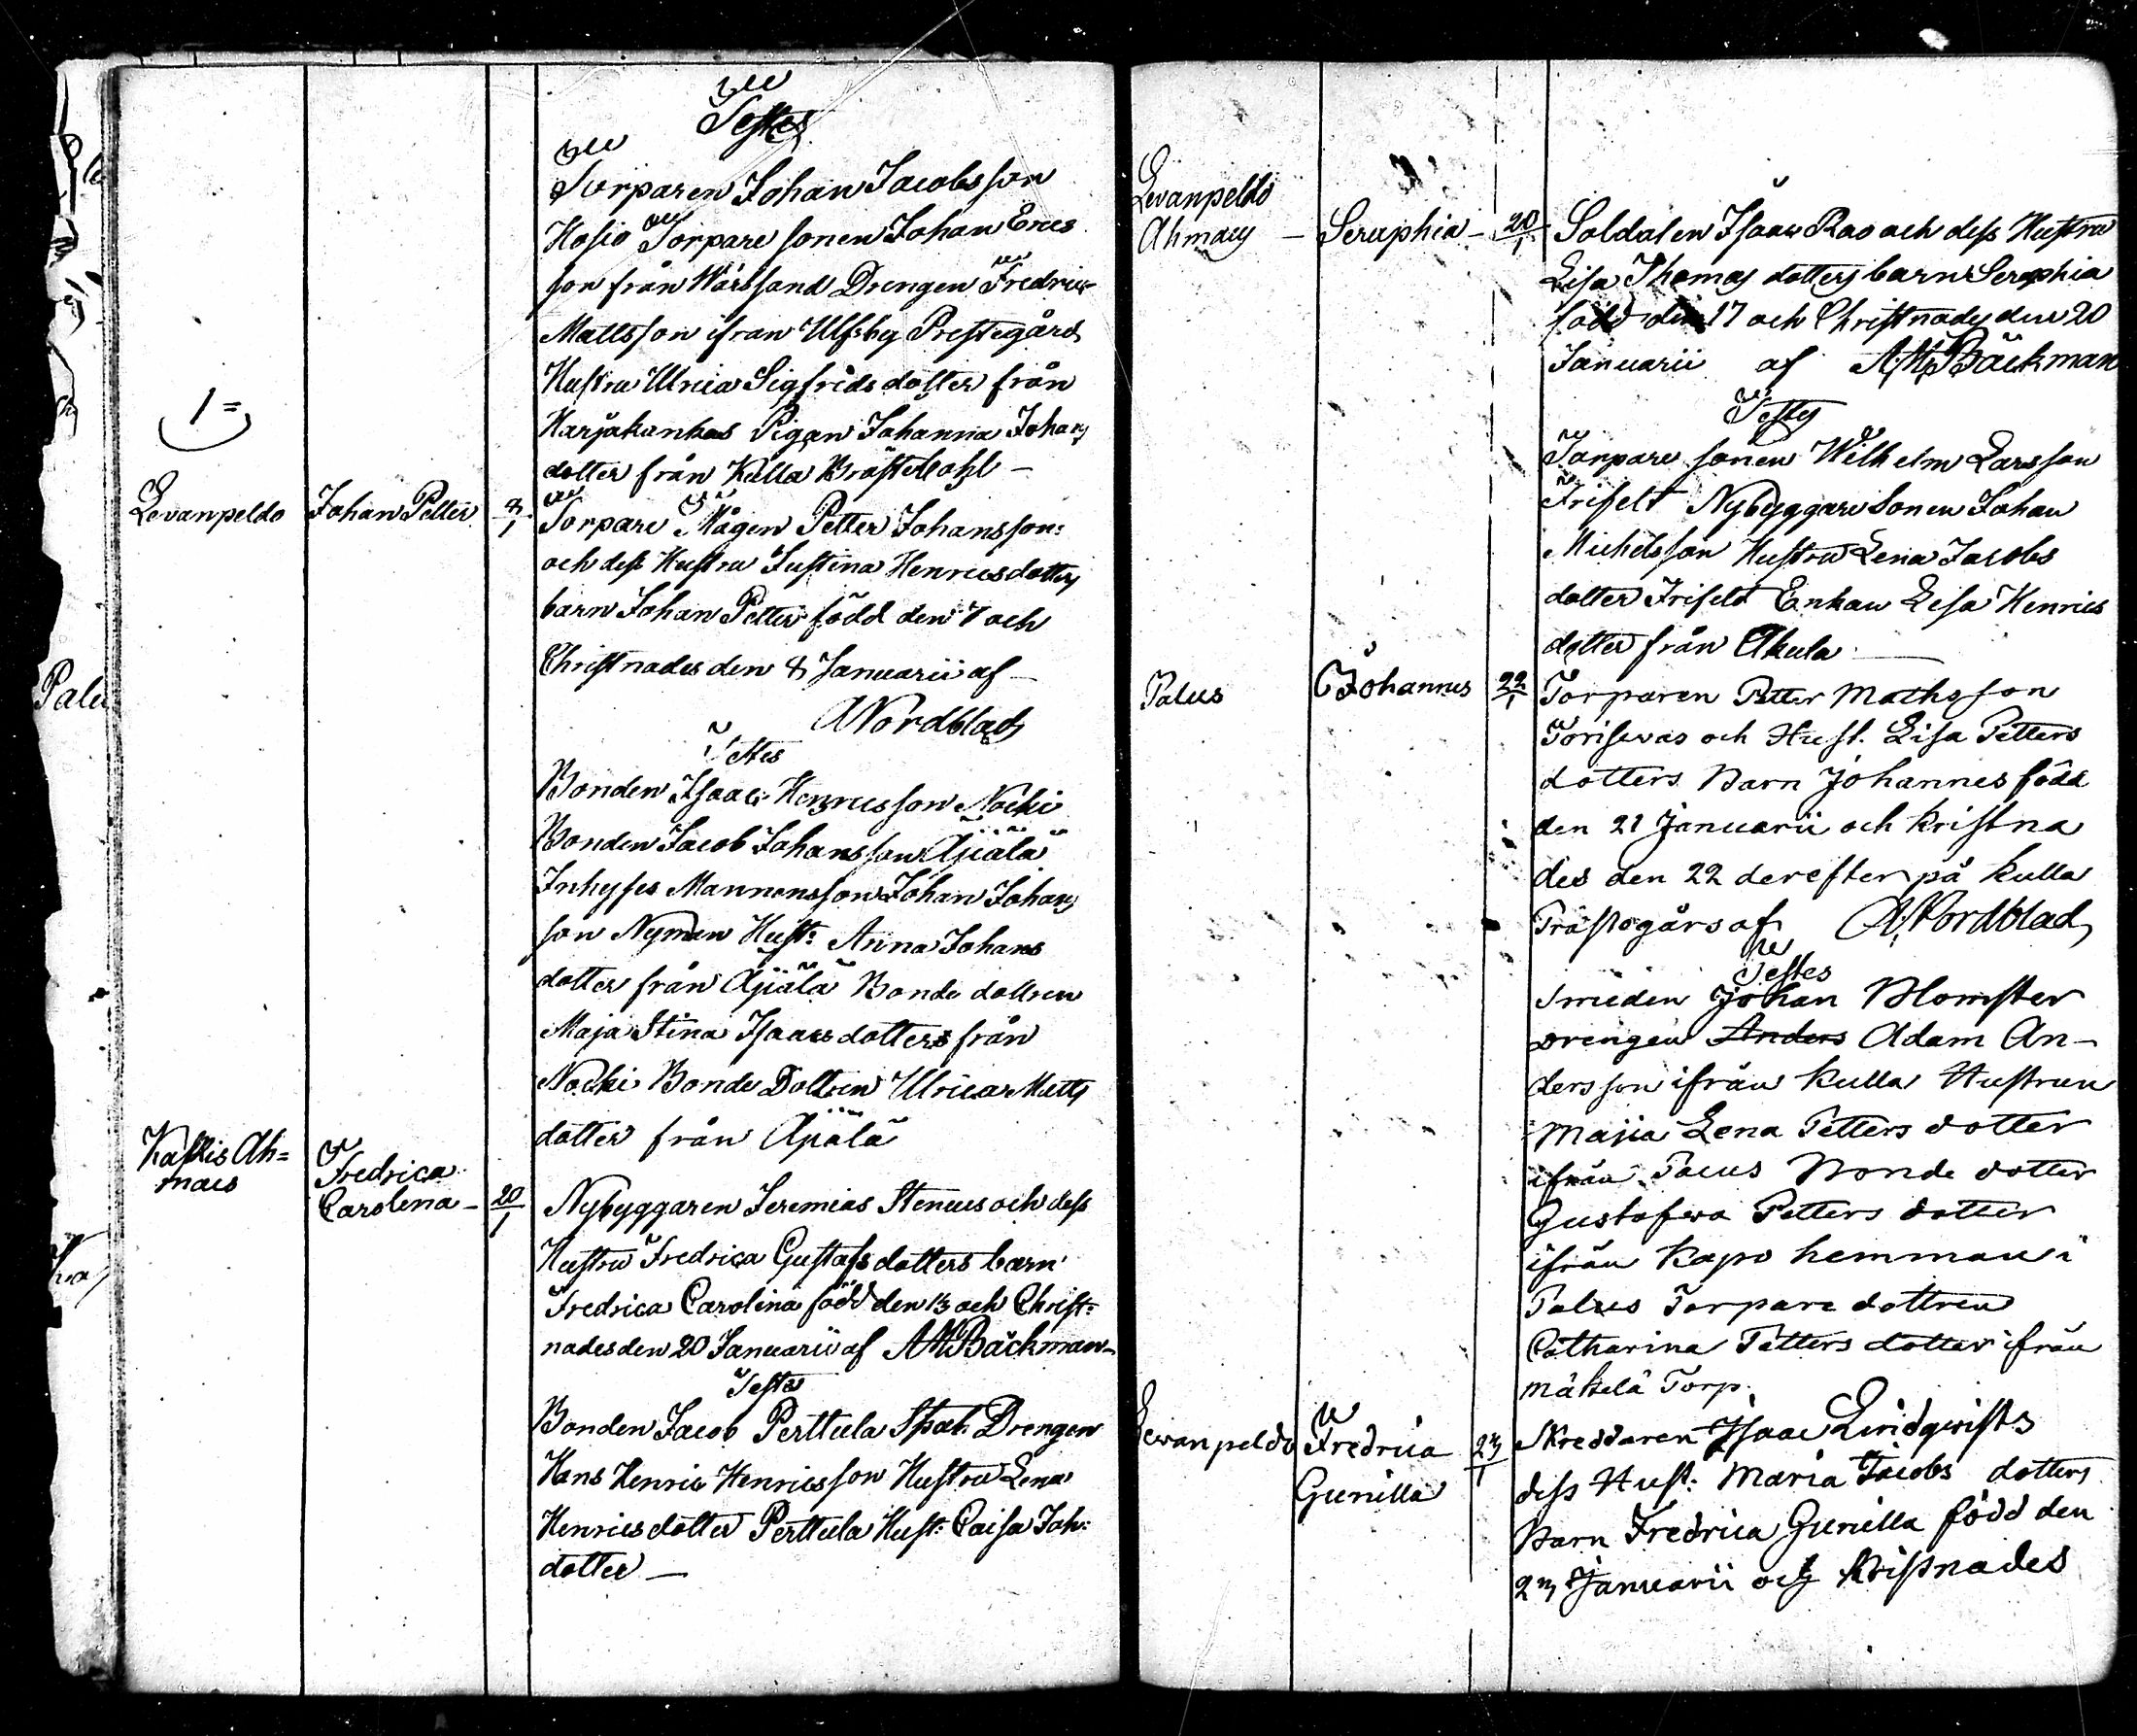 Testes
Torparen Johan Jacobsson
Kosio Torpare sonen Johan Erics
son från Wärssand Drengen Fredric
Mattsson ifran Ulfsby Prestegård
Hustru Ulrica Sigfrids dotter från
Karjakankas Pigan Johanna Johans
dotter från Kulla
1=
Levanpeldo Johan Petter Torpare Mågen Petter Johansson:
och dess Hustru Justina Henricsdotters
barn Johan Petter född den 7 och
Christnades den 8 Januarii af
A Nordblad
Testes
Bonden Isaac Henricsson Nocki
Bonden Jacob Johansson Äjiälä
Inhyses Mannensson Johan Johans
son Nyman Hust: Anna Johans
dotter från Äjiälä Bonde dottren
Maja Stina Isaacs dotters från
Nocki Bonde Dottren Ulrica Matts
dotter från Äjiälä
Kaskis Ah=
mais
Fredrica
Carolena – 20/1 Nybyggaren Jeremias Stenius och dess
Hustru Fredrica Gustafs dotters barn
Fredrica Carolina född den 13 och Christ=
nades den 20 Januarii af AMBäckman
Testes
Bonden Jacob Perttula Drengen
Hans Henric Henricsson Hustru Lena
Henricsdotter Perttula Hust: Caisa Joh:
dotter —
Levanpeldo
Ahmaus – Seraphia – 20/1 Soldaten Isaac Rao och dess Hustru
Lisa Thomas dotters barn Seraphia
född den 17 och Christnades den 20
Januarii af AMBäckman
Testes
Torpare sonen Wilhelm Larsson
Frifelt Nybyggare Sonen Johan
Michelsson Hustru Lena Jacobs
dotter Frifelt Enkan Lisa Henrics
dotter från Ahula
Palus Johannes 22/1 Torparen Petter Mathsson
Torisevas och Hust. Lisa Petters
dotters Barn Johannes född
den 21 Januarii och kristna
des den 22 derefter på Kulla
Prästogårs af A. Nordblad
Testes
Smeden Johan Blomster
Drengen Anders Adam An-
dersson ifrån Kulla Hustrun
Majia Lena Petters dotter
ifrån Palus Bonde dotter
Gustafwa Petters dotter
ifrån Kapo hemman i
Palus Torpare dottren
Catharina Petters dotter ifrån
Mäkelä Torp.
Levanpeldo Fredrica 23/1 Skreddaren Isaac Lindqwists
Gunilla dess Hust: Maria Jacobs dotters
Barn Fredrica Gunilla född den
23 Januarii och Kristnades